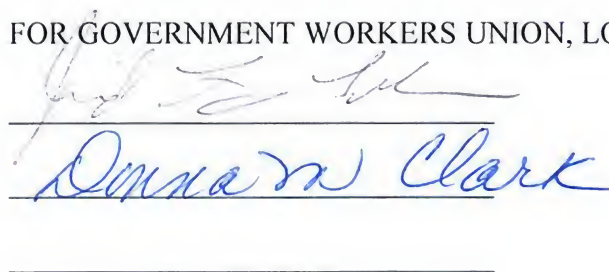 FOR GOVERNMENT WORKERS UNION, LO
Donna M Clark